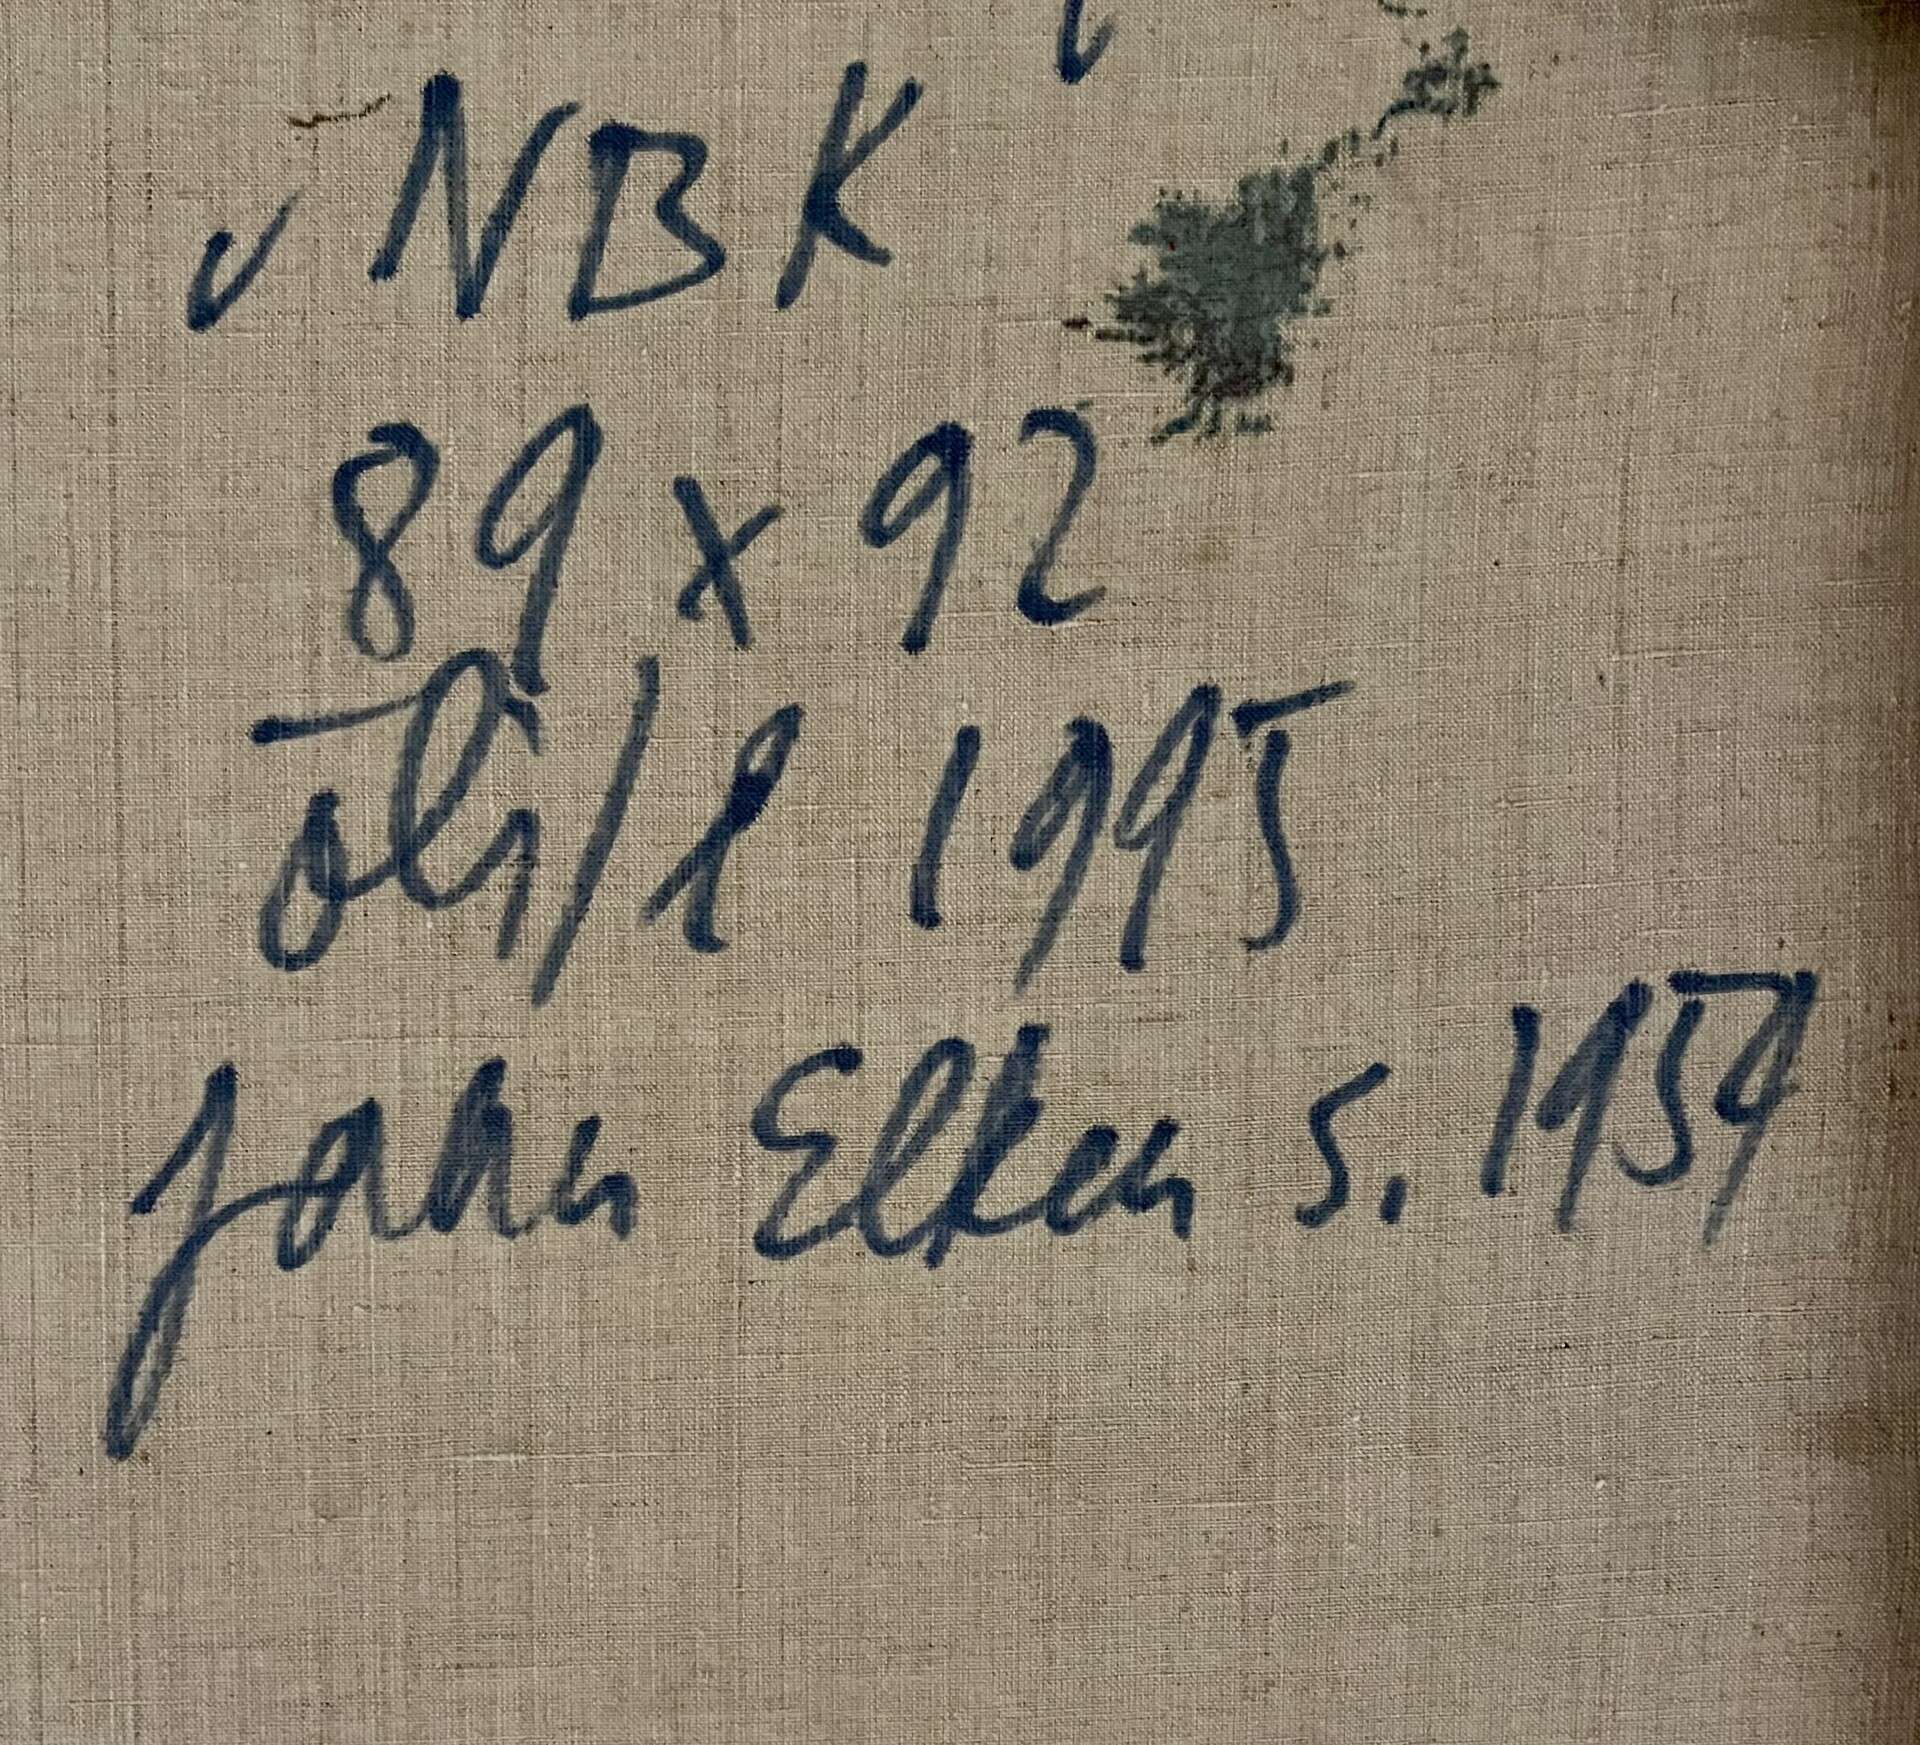 „NBK
89 x 92
õli/l 1995
Jaan Elken s. 1954